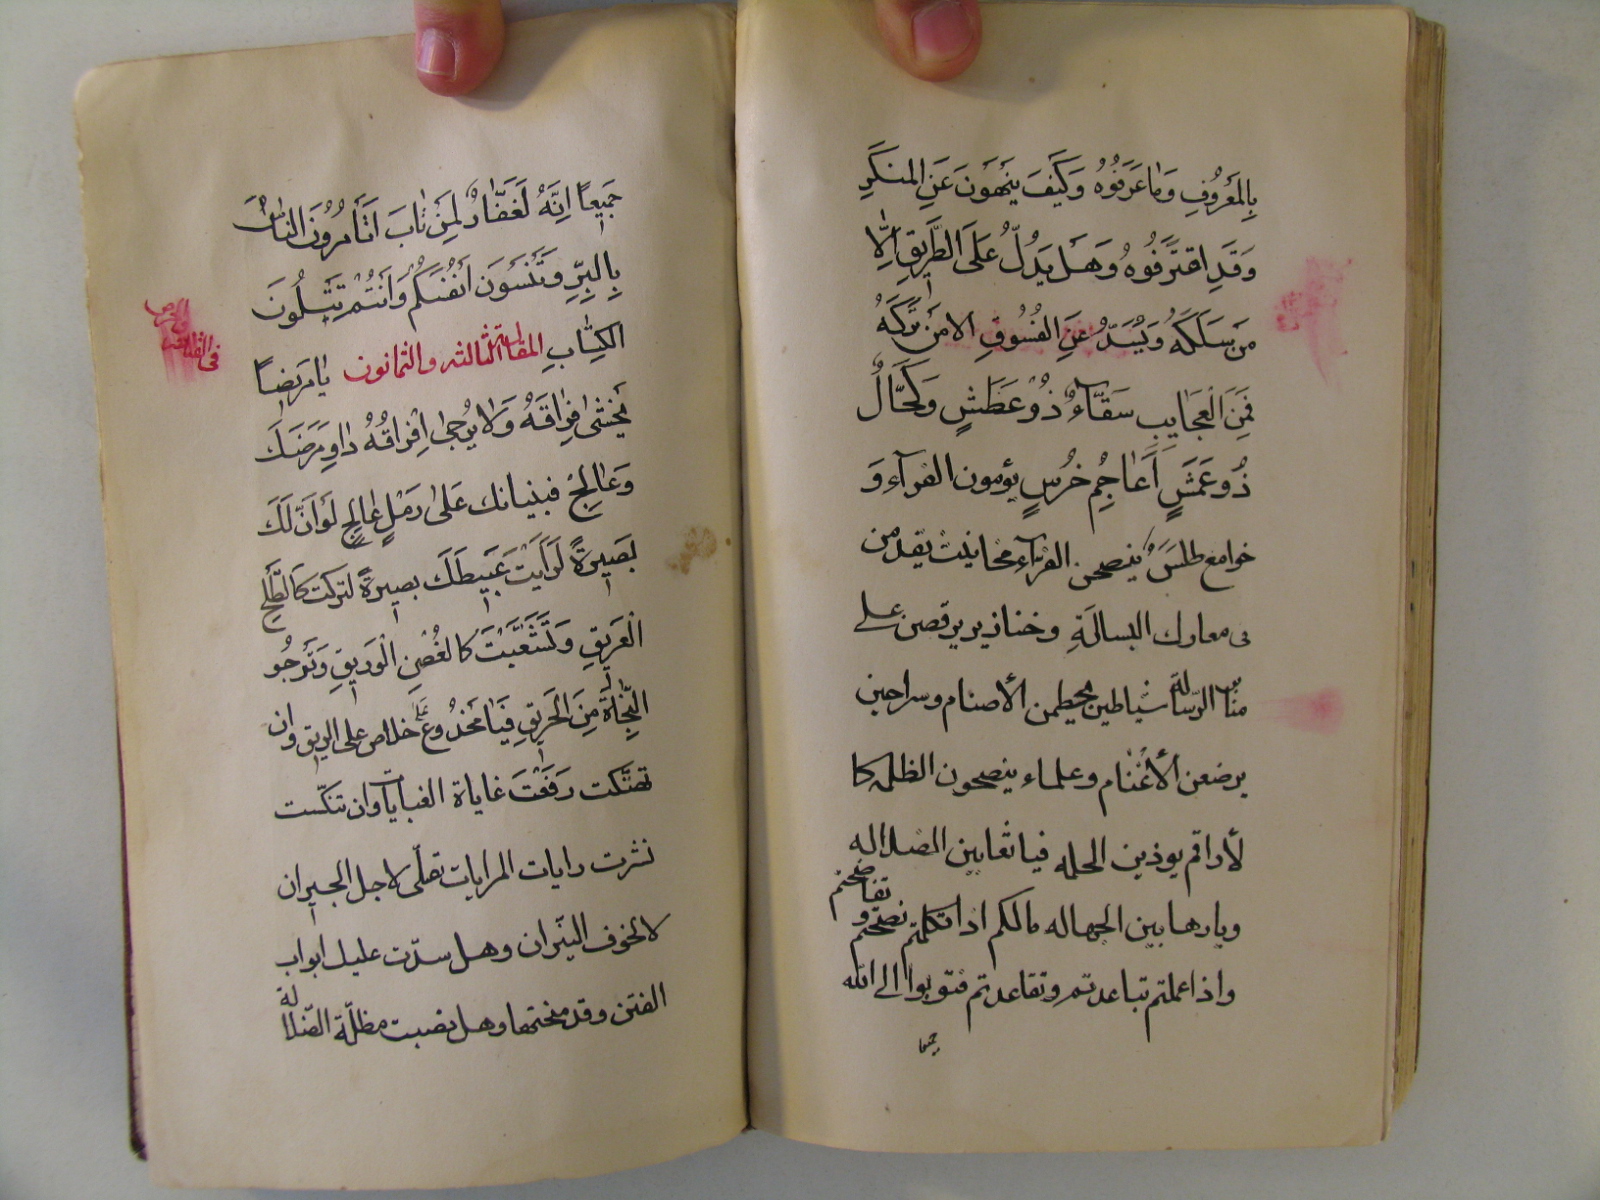 بِالمَعْرُوفِ وَمَا عَرَفُوهُ وَكَيْفَ يَنْهَوْنَ عَنِ المنكَرِ
وَقَدِ اقْتَرَفُوهُ وَهَل يَدُلُّ عَلَى الطَّرِيقِ اِلَّا
مَن سَلَكَهُ وَيَسُدُّ عَنِ الفُسُوقِ الا مَن تَرَكَهُ
فَمِنَ الْعَجَايِبِ سَقَّآءٌ ذُو عَطَشٍ وَكَحَّالٌ
ذُو عَمَشٍ اَعَاجِمِ خُرْسٍ يؤمون القرآء وَ
خوامع طلس ينصحن القرآء مخانيث يقدمن
فى معارك البسالةِ وخنازير يرقصن على
منابر الرّسالة شياطين يحيطمن الأصنام وسراحين
يرضعن الأغْنَام وعلماء ينصحون الظلمه كا
لأراقم يوذين الحلمه فيا ثعابين الضلاله
ويا رهابين الجهاله مالكم اذا تكلمتم نصحتم و
تفاضحتم
واذا عملتم تباعدتم وتقاعدتم فتوبوا الى الله
جميعا
جَمِيعاً اِنَّهُ لَغَفَّارٌ لِمَنْ تَابَ اَتَأمُرُونَ النَّاسَ
بِالبِرِّ وَتَنْسَوْنَ اَنْفُسَكُم وَاَنْتُمْ تَتْلُونَ
الكِتَابِ المقالة الثالثه والثمانون يا مريضاً
يُخشَى فِرَاقَهُ وَلَا يُرْجَى اِفْرَاقُهُ دَاوِ مَرَضَكَ
وَعَالِجْ فبنيانك عَلَى رَمْلٍ عَالِجٍ لَوْ اَنَّ لَكَ
بَصِيرَةً لَرَاَيْتَ عَبِيطَكَ بصيرةً لتركت كَالطَّلْحِ
الْعَرِيقِ وَتَشَعَّبْتَ كَالغُصْنِ الْوَرِيقِ وَتَرْجُو
النَّجَاةَ مِنَ الْحَرِيقِ فَيَا مَخْدُوع خلاص على الريق وان
تهتّكت رَفَعْتَ غاياة الغيايات وان تنكّست
نشرت رايات المرايات تصلّى لاجل الجيران
لا لخوف النيّران وهل سدّت عليك ابواب
الفتن وقد فتحتها وهل نصبت مظلّة الضّلالة